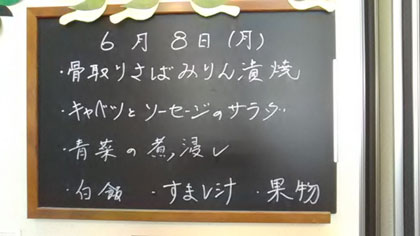 6月8日(月)
・骨取りさばみりん漬焼
・キャベツとソーセージのサラダ
・青菜の煮浸し
・白飯 ・すまし汁 ・果物